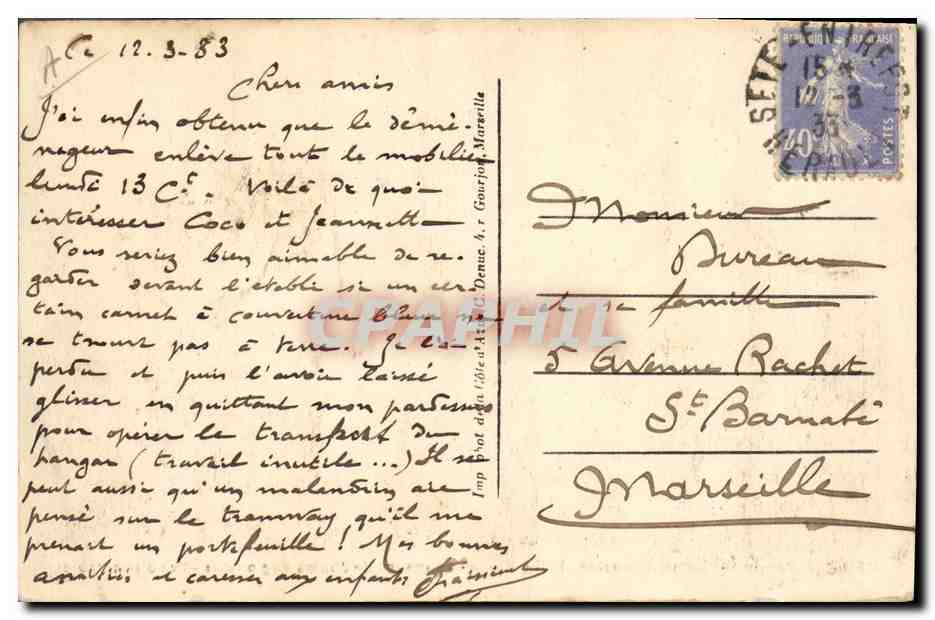 Ce 12.3-33
Chers amis
J'ai enfin obtenu que le démé-
nageur enlève tout le mobilier
lundi 13 Ct. Voilà de quoi
intéresser Coco et Jeannette
Vous seriez bien aimable de re-
garder devant l'établi si un cer-
tain carnet à couverture bleue ne
se trouve pas à terre. Je l'ai
perdu et puis l'avoir laissé
glisser en quittant mon pardessus
pour opérer le transfert du
hangar (travail inutile ...) Il se
peut aussi qu'un malandrin aie
pensé sur le tramway qu'il me
prenait un portefeuille! Mes bonnes
amitiés et caresses aux enfants
Imp Phot de la Côte d'Azur C. Denuc. 4. r Gourjon, Marseille
REPUBLIQUE FRANCAISE
40c
POSTES
SETE
15
12 -3
33
HERAULT
Monsieur
Bureau
et sa famille
5 Avenue Rachet
St Barnabé
Marseille
CPAPHIL